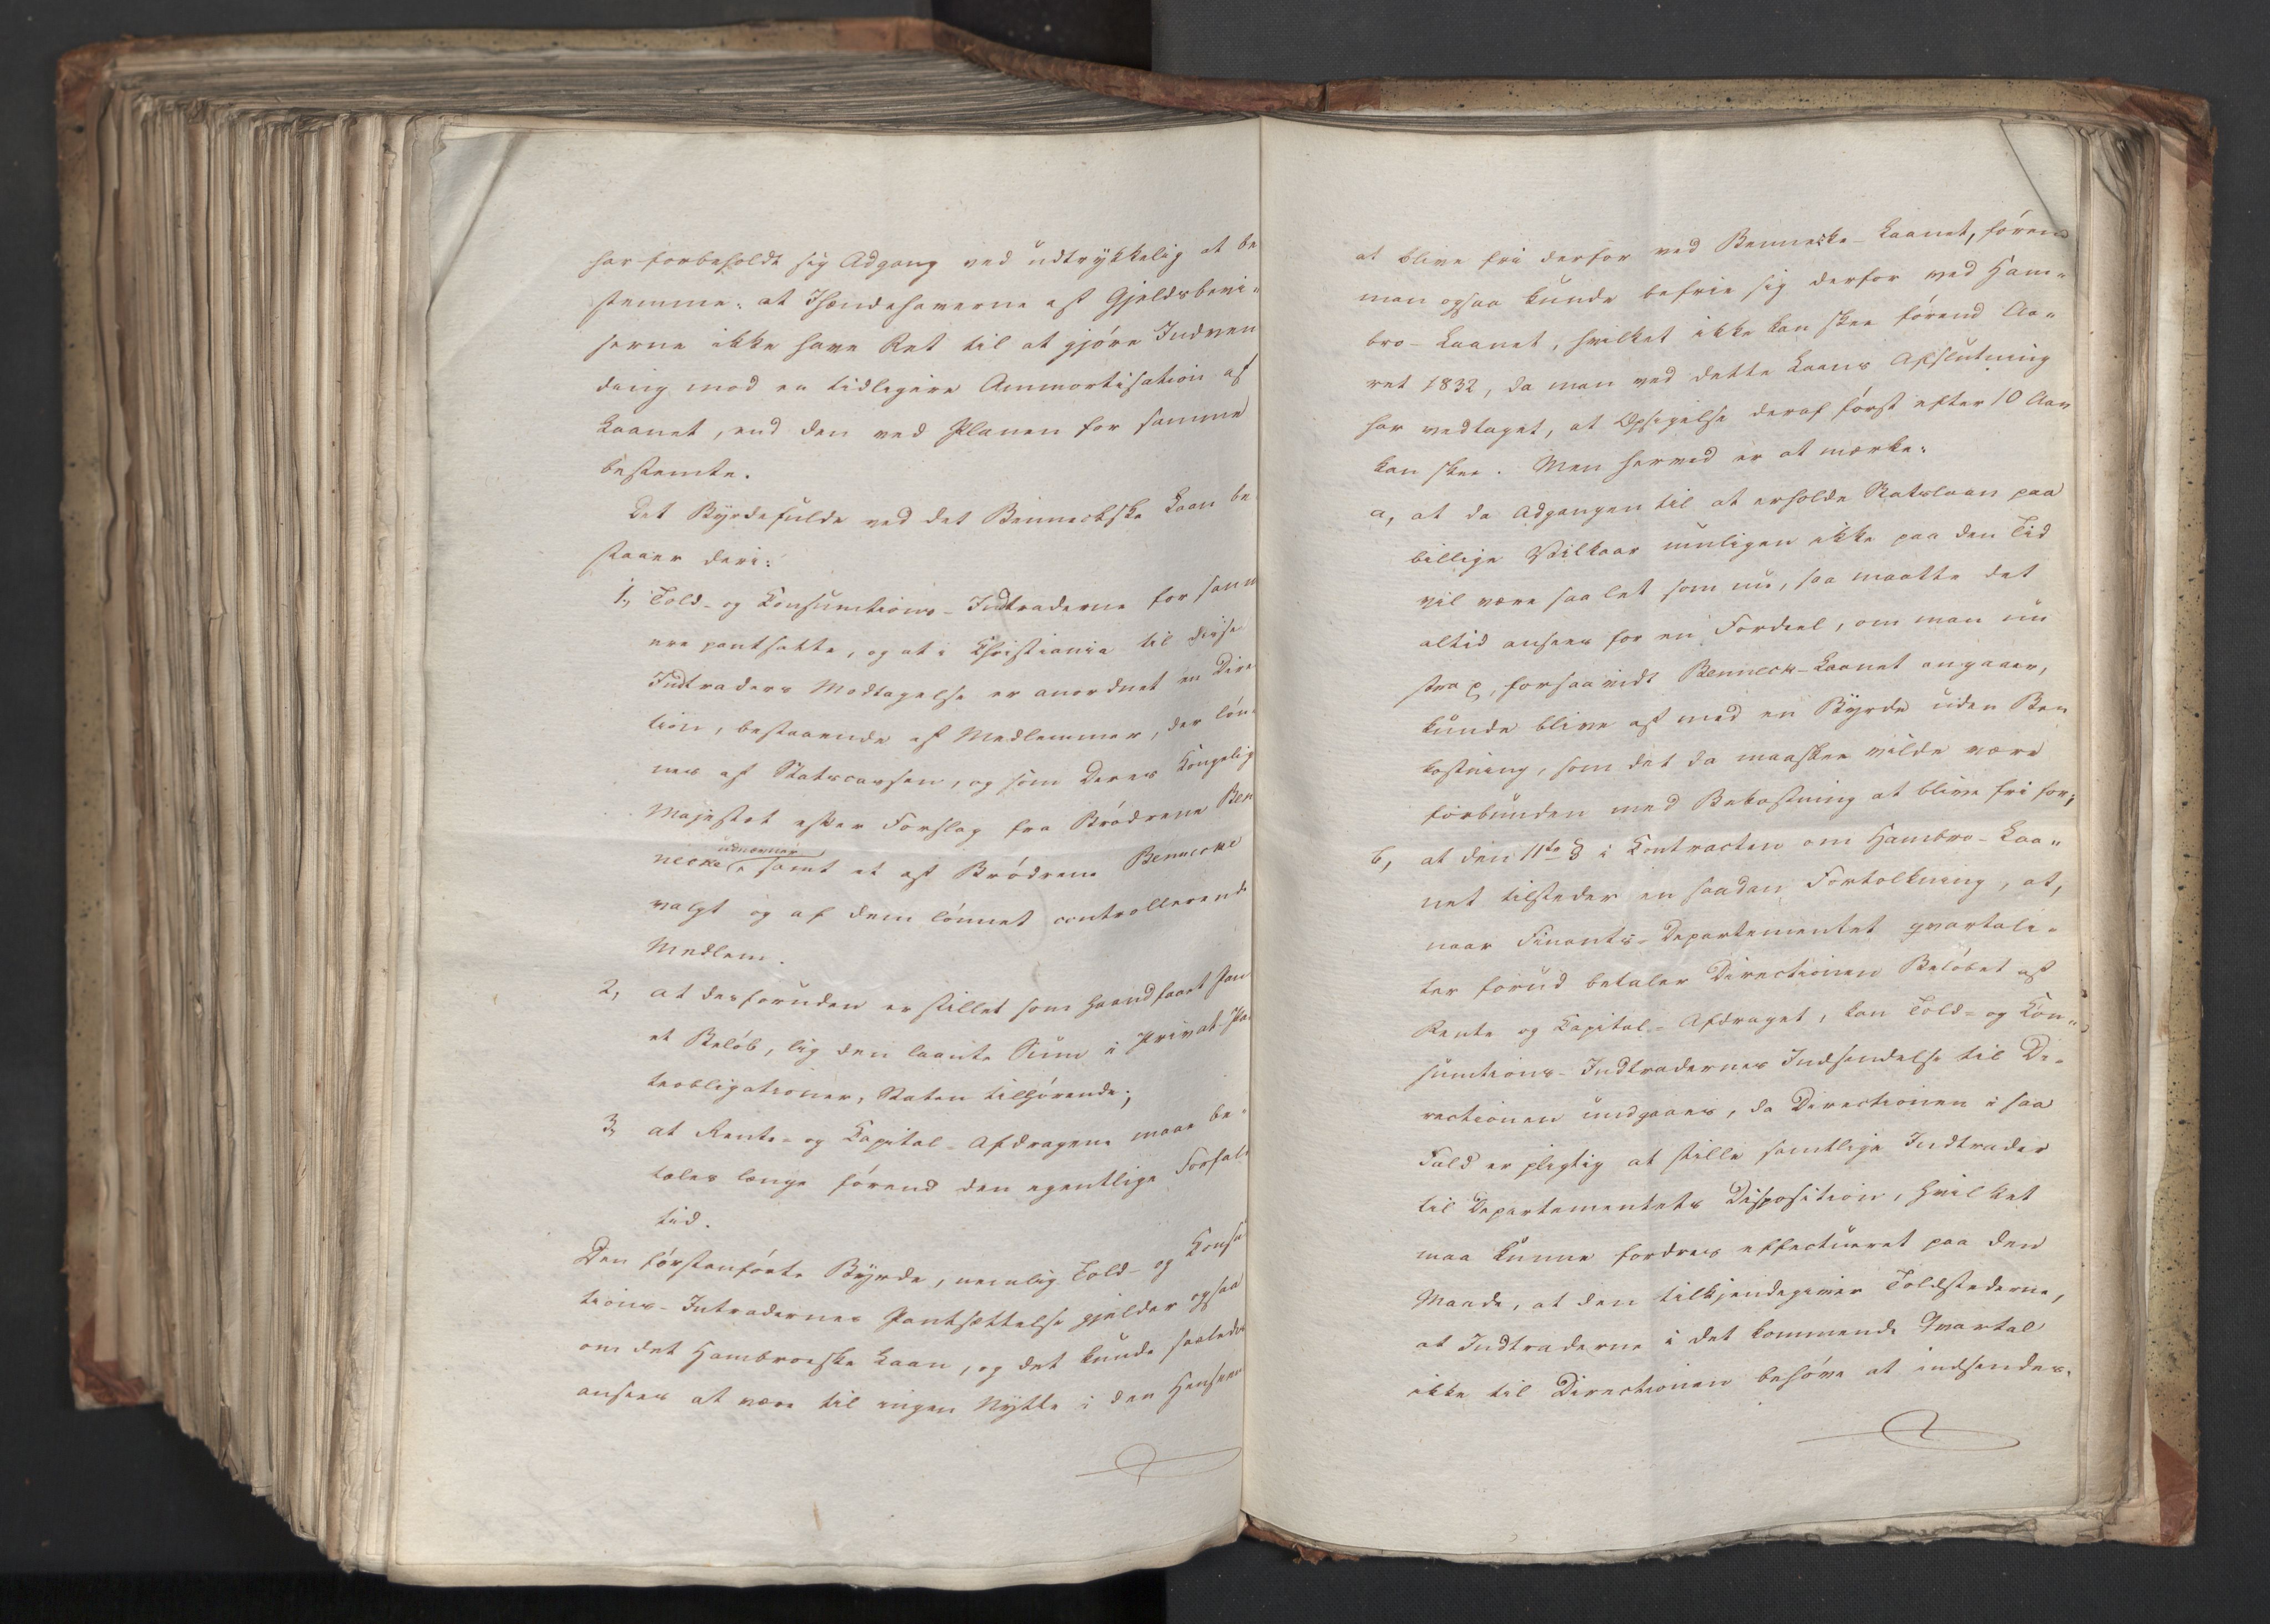 har forbeholdt sig Adgang ved udtrykkelig at be
stemme: at Ihændehaverne af Gjeldsbevi-
serne ikke have Ret til at gjøre Indven
ding mod en tidligere Ammortisation af
Laanet, end den ved Planen for samme
bestemte.
Det Byrdefulde ved det Benneckske Laan be
staaer deri:
1, Told- og Consumtions-Indtraderne for samme
ere pantsatte, og at i Christiania til disse
Indtraders Modtagelse er anordnet en Direc
tion, bestaaende af Medlemmer, der løn-
nes af Statscassen, og som Deres Kongelig
Majestæt efter Forslag fra Brødrene Ben
necke udnævner, samt et af Brødrene Bennecke
valgt og af dem lønnet controllerende
Medlem.
2, at desforuden er stillet som haandfaaet Pan
et Beløb, liig den laante Sum i Privat-Pa
teobligationer, Staten tilhørende;
3, at Rente- og Capital-Afdragene maae be-
tales længe førend den egentlige Forfalds
tid.
Den førstanførte Byrde, nemlig Told- og Consu
tions-Intradernes Pantsættelse gjelder ogsaa
om det Hambroeske Laan, og det kunde saaledes
ansees at være til ingen Nytte i den Henseen
at blive fri derfor ved Bennecke-Laanet, føren
man ogsaa kunde befrie sig derfor ved Ham-
bro-Laanet, hvilket ikke kan skee førend Aa-
ret 1832, da man ved dette Laans Afslutning
har vedtaget, at Opsigelse deraf først efter 10 Aar
kan skee. Men herved er at mærke:
a, at da Adgangen til at erholde Statslaan paa
billige Vilkaar muligen ikke paa den Tid
vil være saa let som nu, saa maatte det
altid ansees for en Fordeel, om man nu
strax, forsaavidt Benneck-Laanet angaaer,
kunde blive af med en Byrde uden Be
kostning, som det da maaskee vilde være
forbunden med Bekostning at blive fri for;
b, at den 11te § i Contracten om Hambro-Laa-
net tilsteder en saadan Fortolkning, at,
naar Finants-Departementet qvartali-
ter forud betaler Directionen Beløbet af
Rente og Capital-Afdraget, kan Told- og Con-
sumtions-Indtradernes Indsendelse til Di-
rectionen undgaaes, da Directionen i saa
Fald er pligtig at stille samtlige Indtrader
til Departementets Disposition, hvilket
maa kunne fordres effectueret paa den
Maade, at den tilkjendegiver Toldstederne,
at Indtraderne i det kommende Qvartal
ikke til Directionen behøve at indsendes.